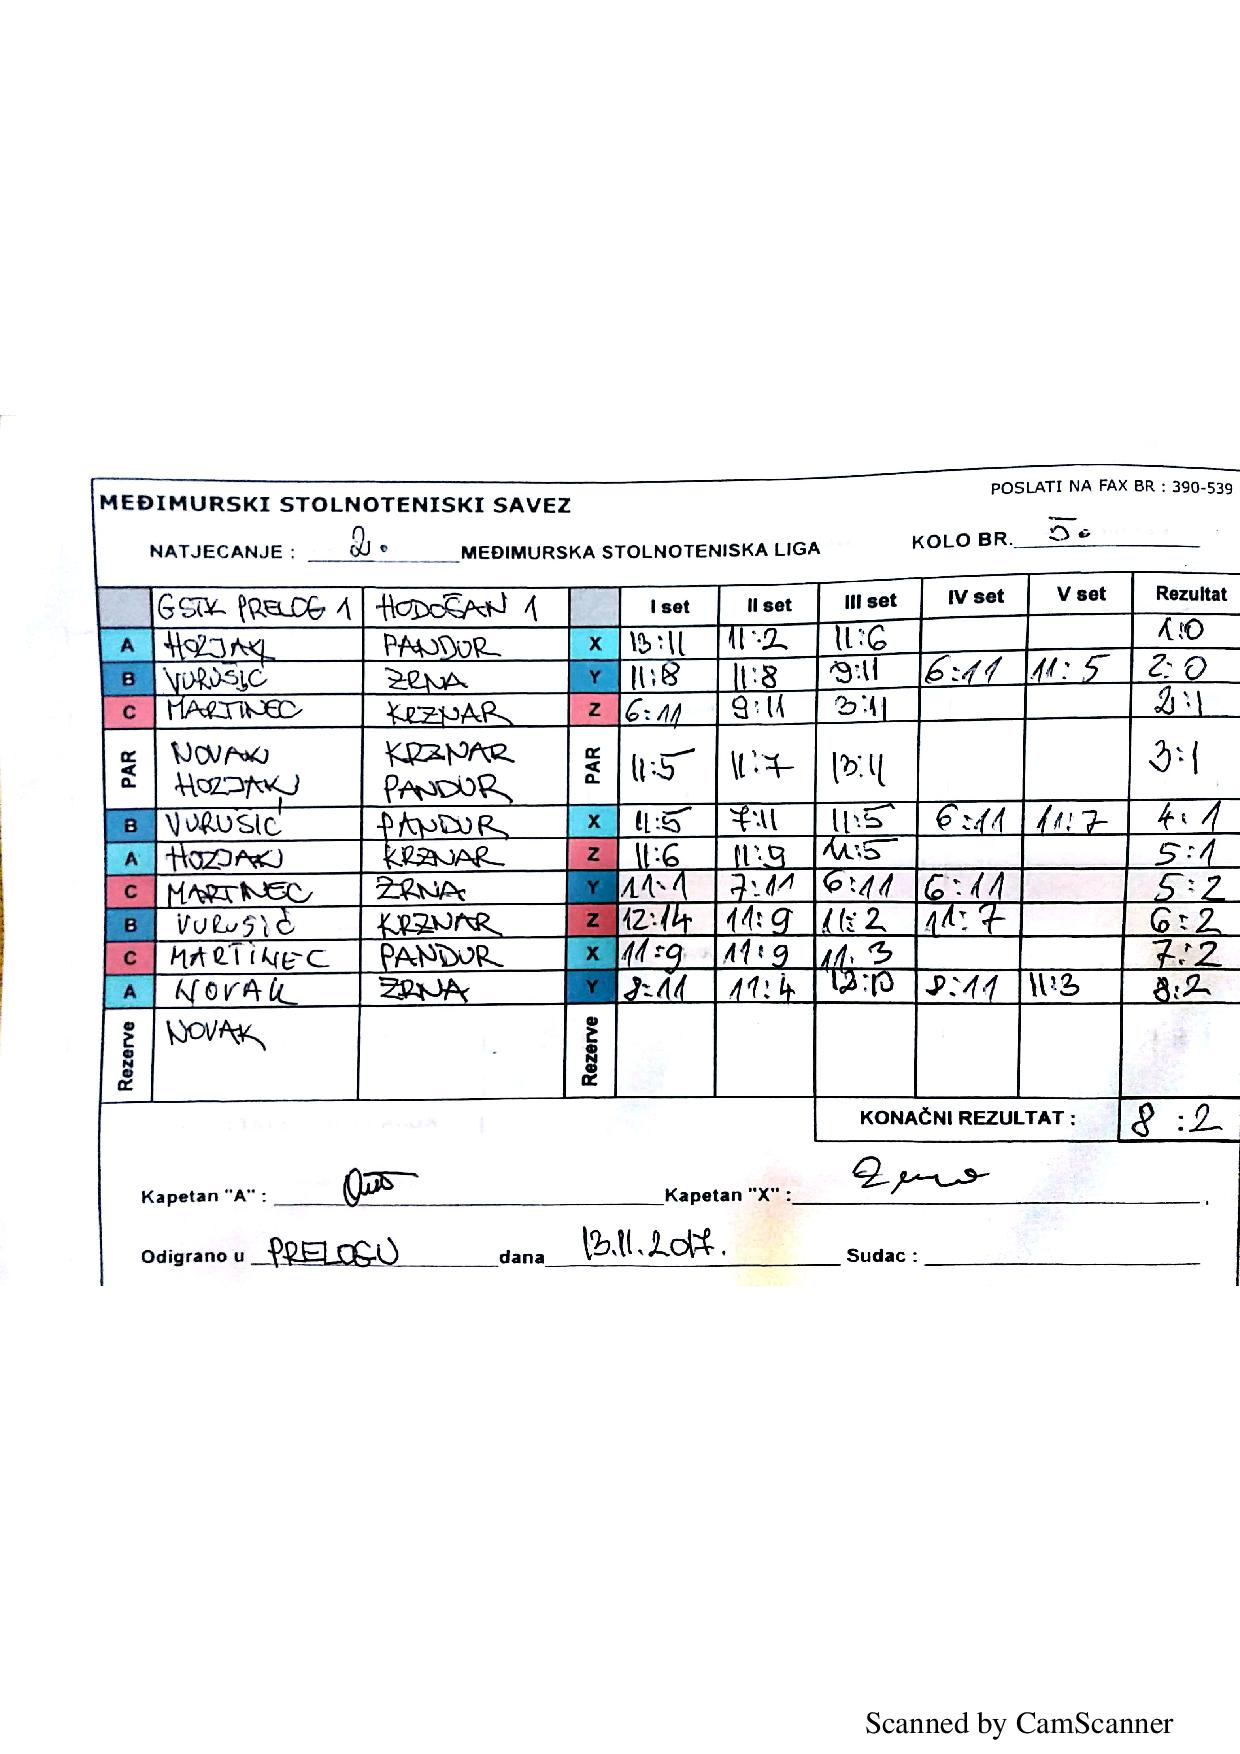 MEĐIMURSKI STOLNOTENISKI SAVEZ POSLATI NA FAX BR : 390-539
NATJECANJE : 2. MEĐIMURSKA STOLNOTENISKA LIGA KOLO BR. 5.
GSTK PRELOG 1 HODOŠAN 1 I set II set III set IV set V set Rezultat
A HOZJAK PANDUR X 13:11 11:2 11:6 1:0
B VURUŠIĆ ZRNA Y 11:8 11:8 9:11 6:11 11:5 2:0
C MARTINEC KRZNAR Z 6:11 9:11 3:11 2:1
PAR NOVAK KRZNAR PAR 11:5 11:7 13:11 3:1
HOZJAK PANDUR
B VURUSIĆ PANDUR X 11:5 7:11 11:5 6:11 11:7 4:1
A HOZJAK KRZNAR Z 11:6 11:9 11:5 5:1
C MARTINEC ZRNA Y 11:1 7:11 6:11 6:11 5:2
B VURUSIĆ KRZNAR Z 12:14 11:9 11:2 11:7 6:2
C MARTINEC PANDUR X 11:9 11:9 11:3 7:2
A NOVAK ZRNA Y 8:11 11:4 12:10 8:11 11:3 8:2
Rezerve NOVAK Rezerve
KONAČNI REZULTAT : 8:2
Kapetan "A" : Kapetan "X" :
Odigrano u PRELOGU dana 13.11.2017. Sudac :
Scanned by CamScanner